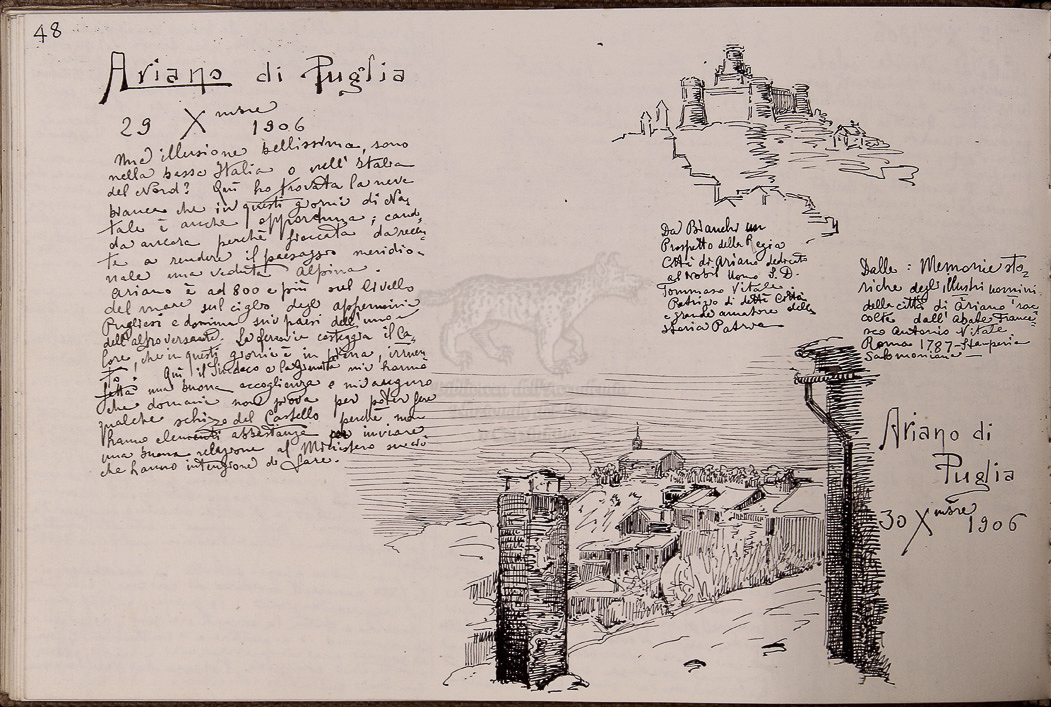 48
Ariano di Puglia
29 Xmbre 1906
Una illusione bellissima, sono
nella bassa Italia o nell'Italia
del Nord? Qui ho trovata la neve
bianca che in questi giorni di Na=
tale è anche opportuna; candi=
da ancora perchè fioccata da recen=
te a rendere il paesaggio meridio=
nale una veduta Alpina.
Ariano è ad 800 e più sul livello
del mare sul ciglio degli appennini
Pugliesi e domina sui paesi dell'uno e
dell'altro versante. La ferrovia costeggia il Ca=
lore, che in questi giorni è in piena,
Qui il Sindaco e la Giunta mi hanno
fatta una buona accoglienza e mi
che domani per poter fare
qualche schizzo del Castello perchè non
hanno elementi abbastanza inviare
una buona relazione al Ministero
che hanno intenzione di fare.
Da Bianchi un
Prospetto della Regia
Città di Ariano dedicato
al Nobil Uomo S.D.
Tommaso Vitale
Patrizio di detta Città
e grande amatore della
storia Patria
Dalle: Memorie sto=
riche degli illustri uomini
della città di Ariano rac=
colte dall'Abate France=
sco Antonio Vitale
Roma 1787 - Stamperia
Salomoniana -
Ariano di
Puglia
30 Xmbre 1906